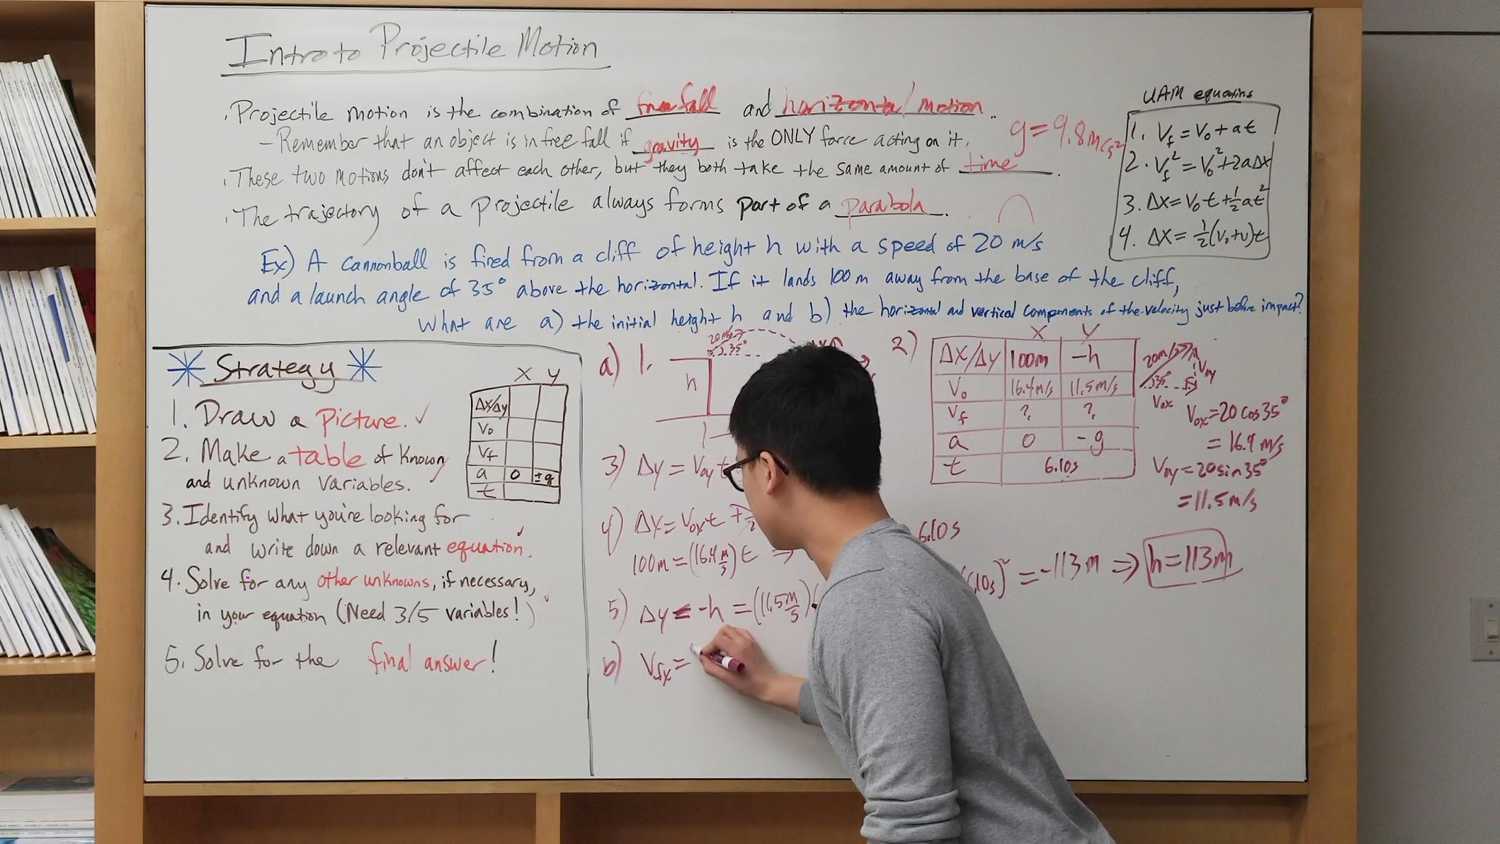 Intro to Projectile Motion
· Projectile motion is the combination of free fall and horizontal motion.
- Remember that an object is in free fall if gravity is the ONLY force acting on it.
g = 9.8 m/s²
· These two motions don't affect each other, but they both take the same amount of time.
· The trajectory of a projectile always forms part of a parabola.
UAM equations
1. Vf = V₀ + at
2. Vf² = V₀² + 2aΔx
3. Δx = V₀t + ½at²
4. Δx = ½(V₀+V)t
Ex) A cannonball is fired from a cliff of height h with a speed of 20 m/s
and a launch angle of 35° above the horizontal. If it lands 100 m away from the base of the cliff,
what are a) the initial height h and b) the horizontal and vertical components of the velocity just before impact?
Strategy
X Y
Δx/Δy
V₀
Vf
a 0 ±g
t
1. Draw a picture. ✓
2. Make a table of known
and unknown variables.
3. Identify what you're looking for
and write down a relevant equation.
4. Solve for any other unknowns, if necessary,
in your equation (Need 3/5 variables!)
5. Solve for the final answer!
a) 1.
20 m/s
35°
h
2)
X Y
Δx/Δy 100m -h
V₀ 16.4m/s 11.5m/s
Vf ? ?
a 0 -g
t 6.10s
20m/s
35°
V₀y
V₀x
V₀x = 20cos35°
= 16.4 m/s
V₀y = 20sin35°
= 11.5 m/s
3) Δy = V₀y t
4) Δx = V₀x t
100m = (16.4 m/s) t ⇒
6.10s
5) Δy = -h = (11.5 m/s)
= -113 m ⇒ h = 113m
b) Vfx =